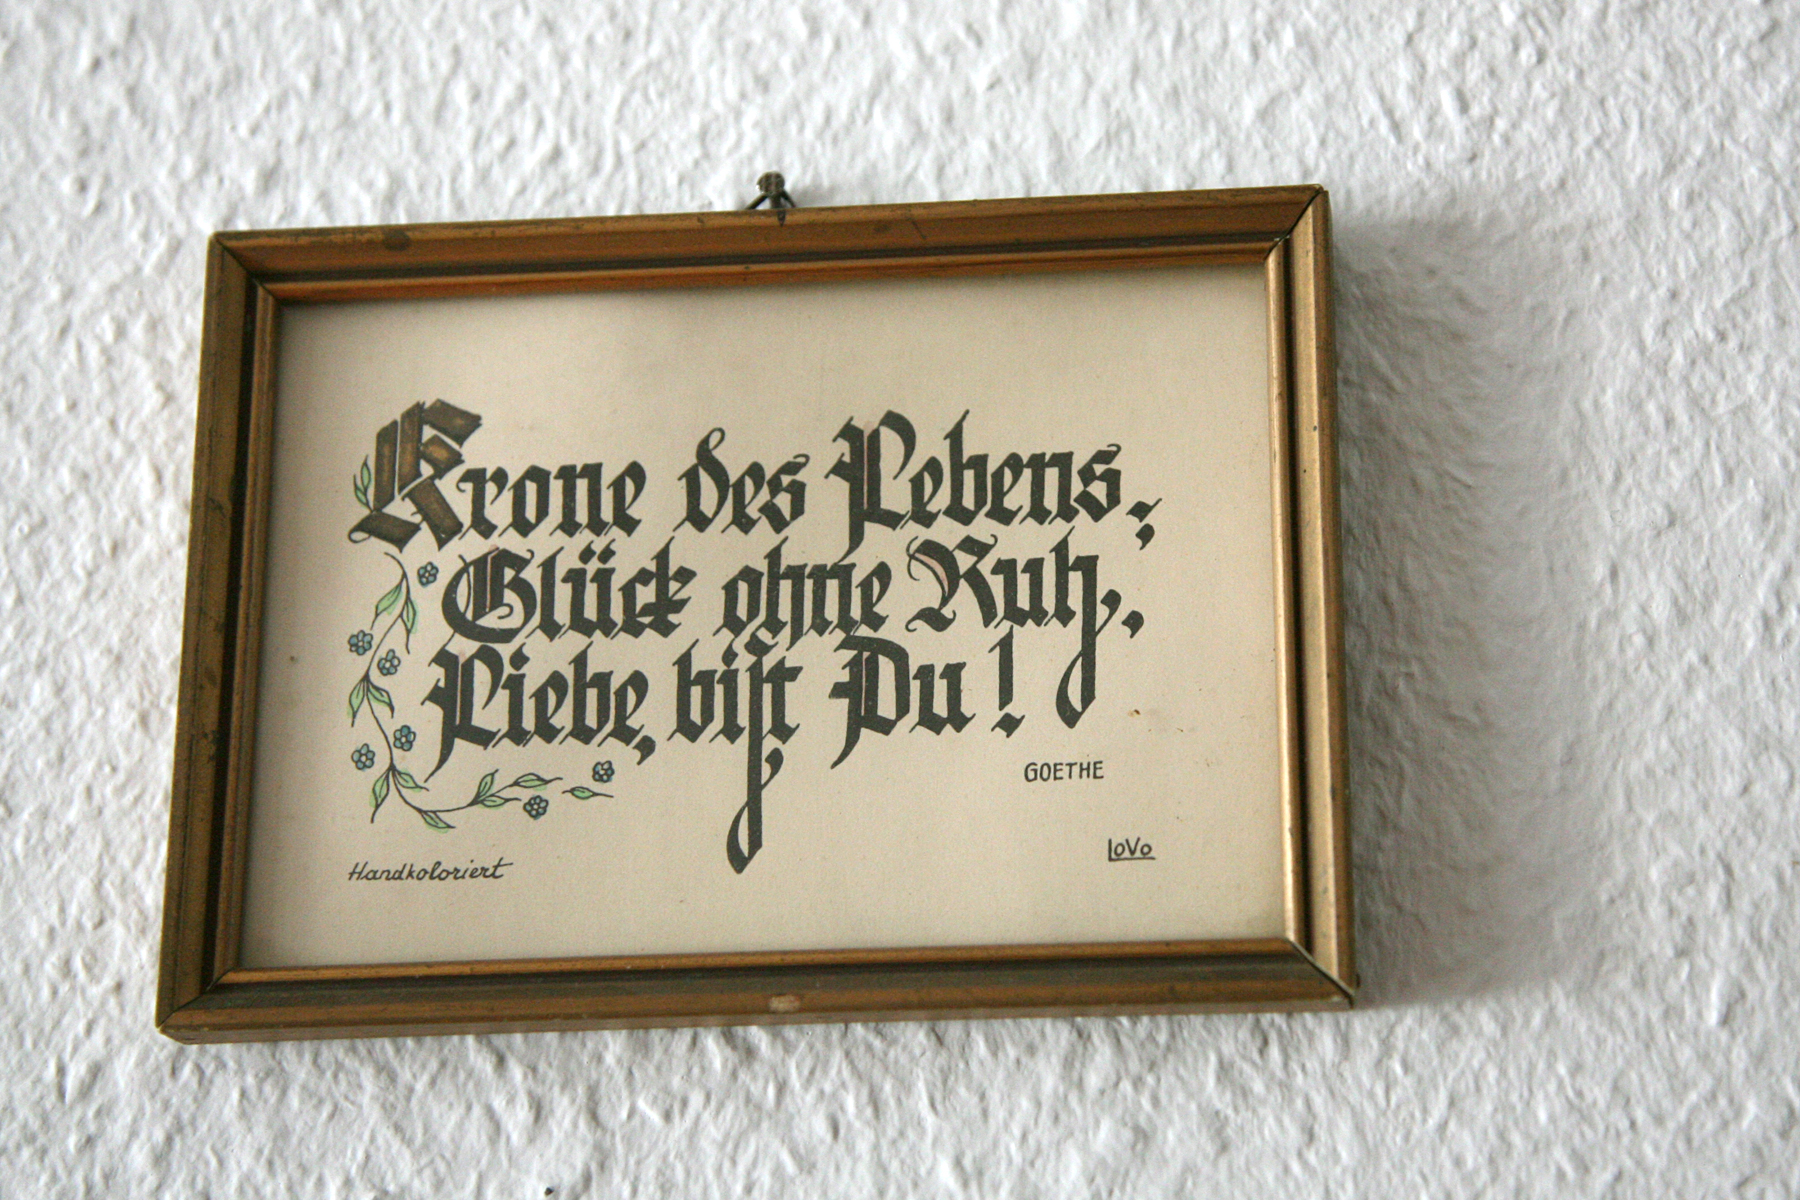 Krone des Lebens,
Glück ohne Ruh,
Liebe, bist Du!
GOETHE
LoVo
Handkoloriert